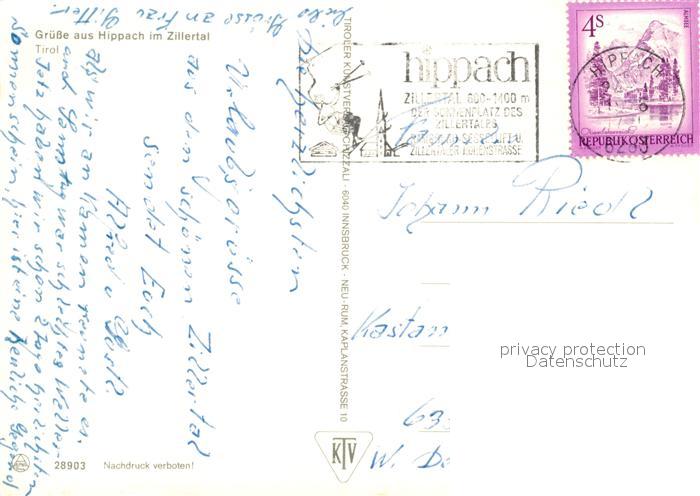 Grüße aus Hippach im Zillertal
Tirol
Liebe Grüsse an Frau
Die herzlichsten
Urlaubsgrüsse
aus dem schönen Zillertal
sendet Euch
Alfred u.
Als wir an kamen regnete es
und Samstag war schlechtes Wetter
Jetzt haben wir schon 2 Tage herrlichsten
Sonnenschein, hier ist eine herrliche Gegend
28903 Nachdruck verboten!
TIROLER KUNSTVERLAG CHIZZALI · 6040 INNSBRUCK - NEU-RUM, KAPLANSTRASSE 10
KTV
hippach
ZILLERTAL 600-1400 m
DER SONNENPLATZ DES
ZILLERTALES
ZILLERTALER HÖHENSTRASSE
HIPPACH
6283
4S
ALMSEE
REPUBLIK ÖSTERREICH
Familie
Johann Riedl
Kastan
63
W. De
privacy protection
Datenschutz